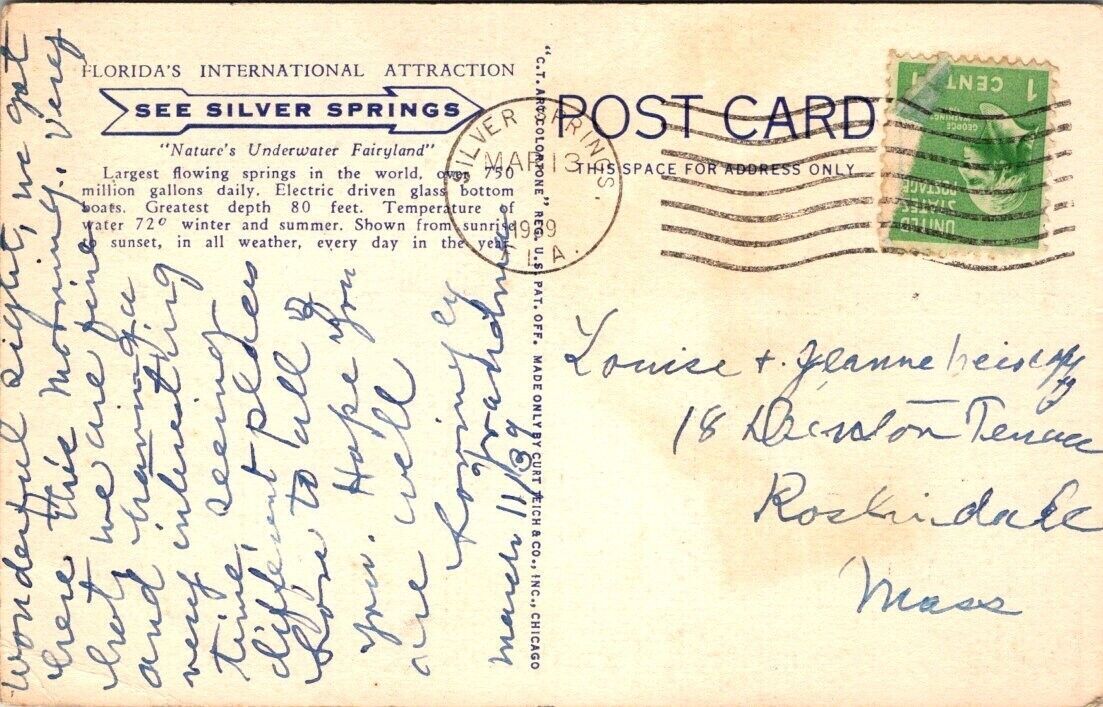 FLORIDA'S INTERNATIONAL ATTRACTION
SEE SILVER SPRINGS
"Nature's Underwater Fairyland"
Largest flowing springs in the world, over 750
million gallons daily. Electric driven glass bottom
boats. Greatest depth 80 feet. Temperature of
water 72° winter and summer. Shown from sunrise
to sunset, in all weather, every day in the year.
"C.T. ART-COLORTONE" REG. U.S. PAT. OFF. MADE ONLY BY CURT TEICH & CO., INC., CHICAGO
POST CARD
THIS SPACE FOR ADDRESS ONLY
SILVER SPRINGS.
MAR 13
1939
FLA.
1 CENT 1
GEORGE
WASHINGTON
UNITED
STATES
POSTAGE
wonderful sight, we got
here this morning. very
hot, we are fine
and having a
very interesting
time, seeing
different places
Love to all of
you. Hope you
are well
Lovingly
Grandma
March 11/39
Louise + Jeanne
18 Terrace
Roslindale
Mass